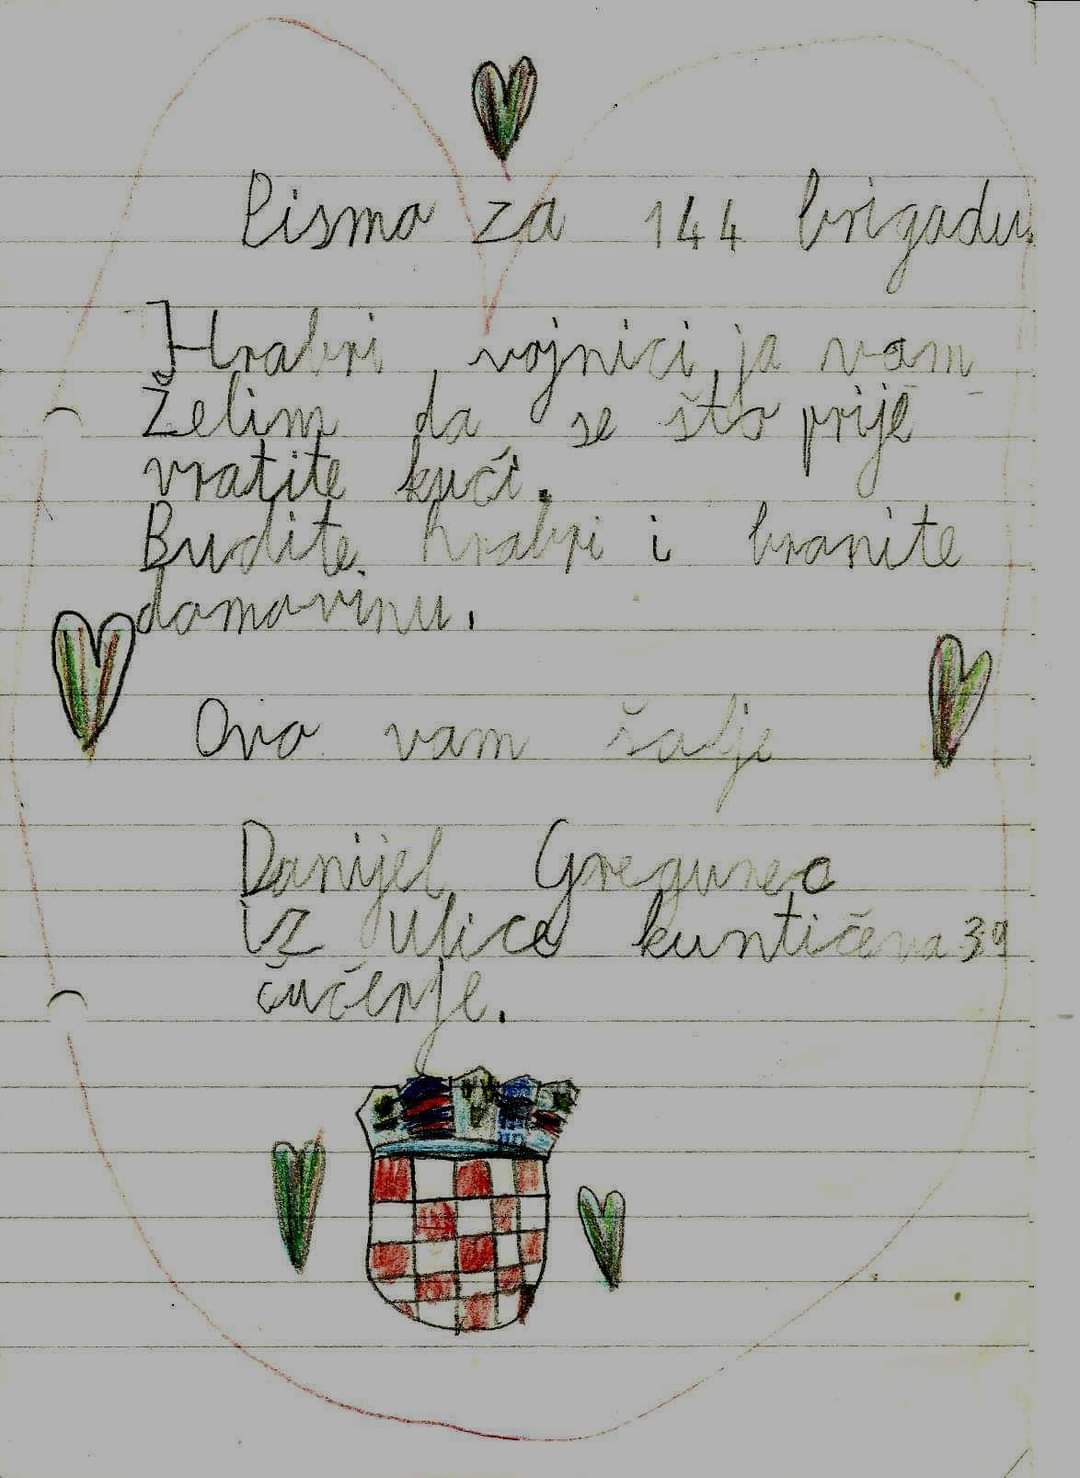 Pisma za 144 brigadu.
Hrabri vojnici, ja vam
Želim da se što prije
vratite kući.
Budite hrabri i branite
domovinu.
Ovo vam šalje
Danijel Gregureo
iz Ulice kuntičeva 39
čučerje.